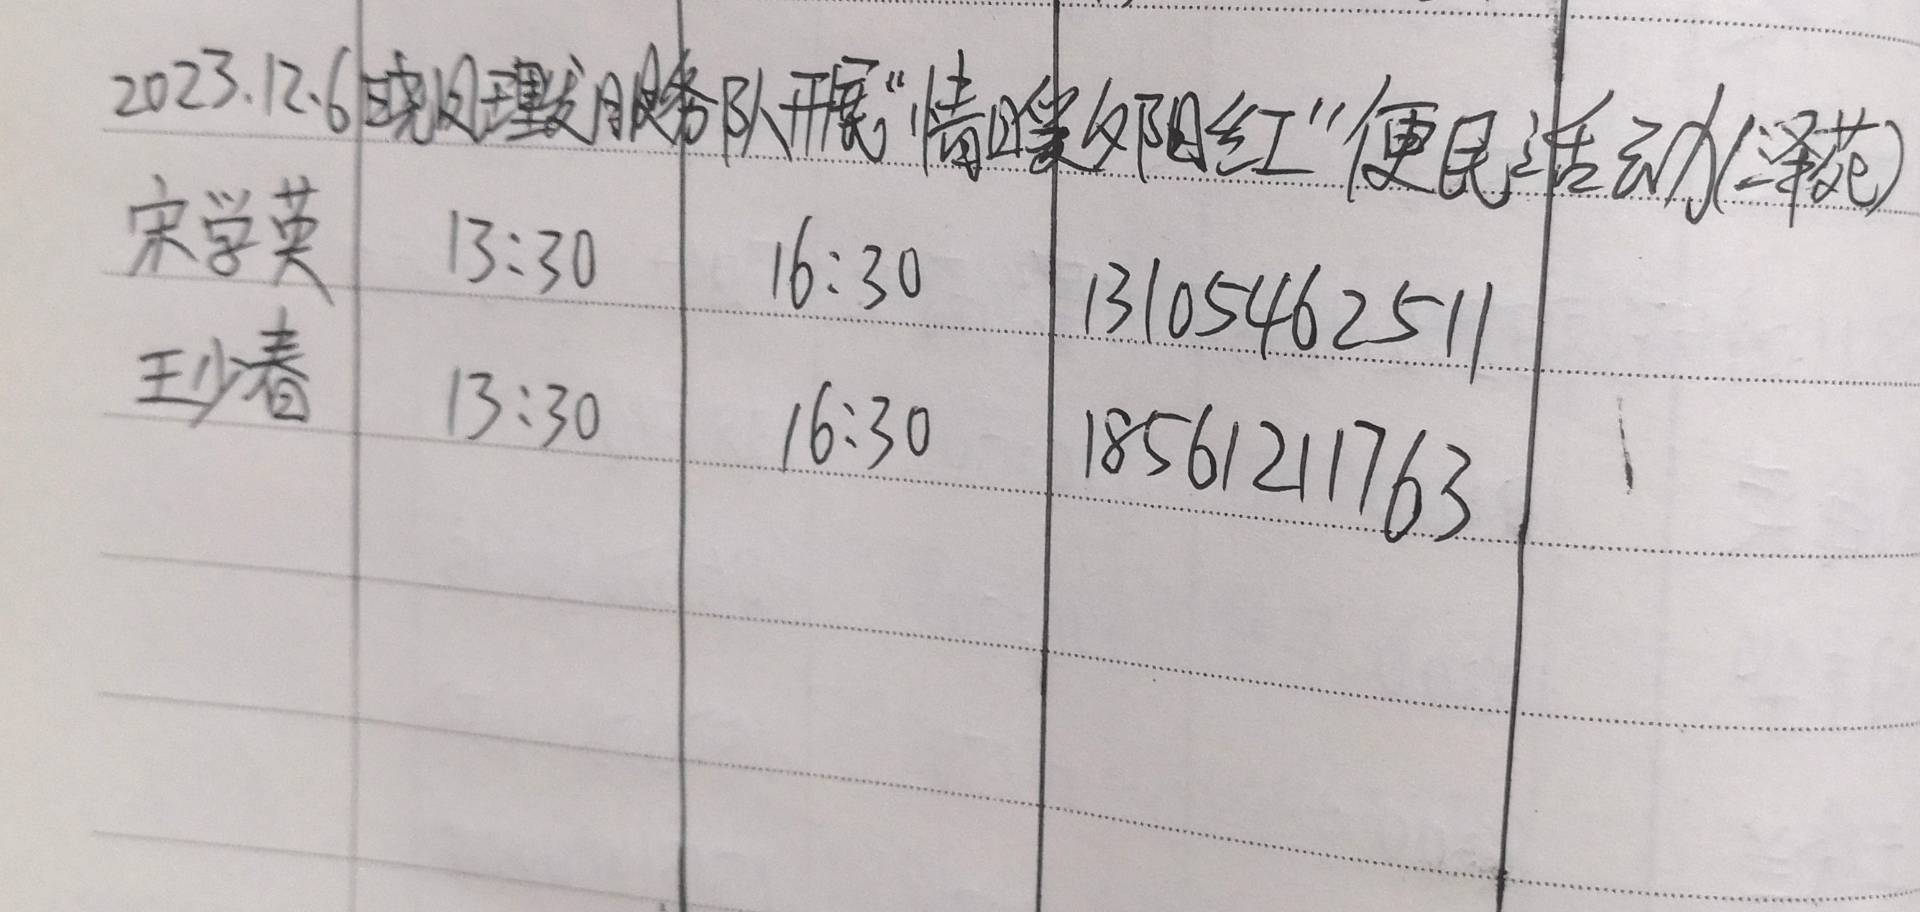 2023.12.6晓月理发服务队开展“情暖夕阳红”便民活动(泽苑)
宋学英 13:30 16:30 13105462511
王少春 13:30 16:30 18561211763